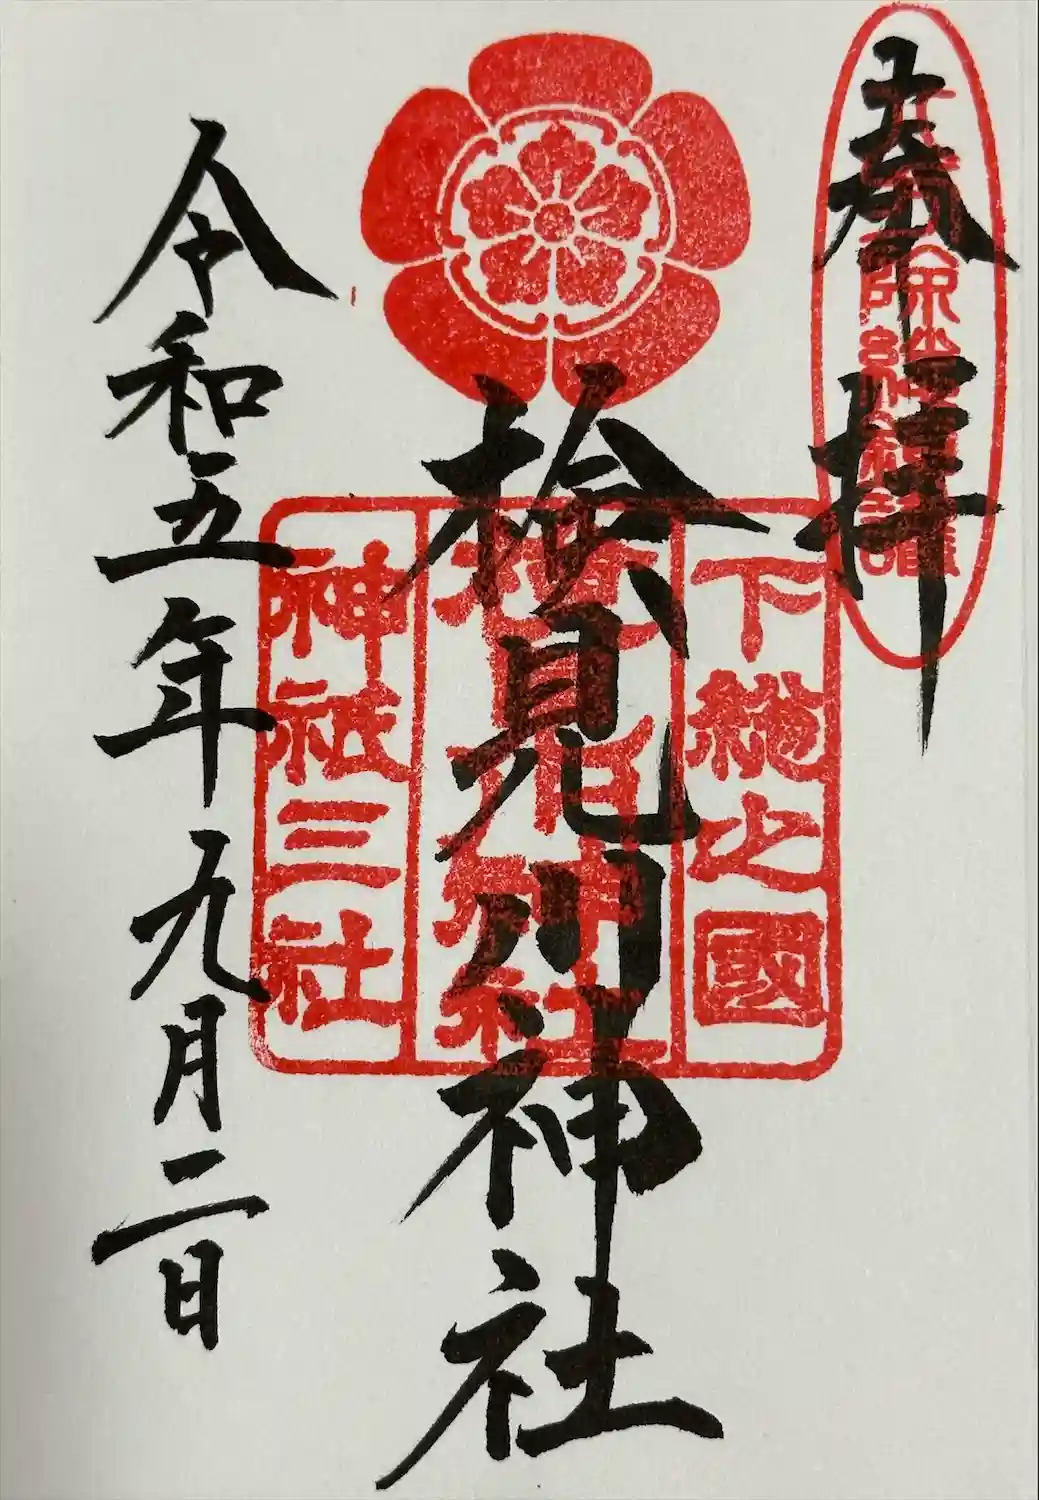 奉拝
下総之國
検見川神社
神祇三社
令和五年九月二日